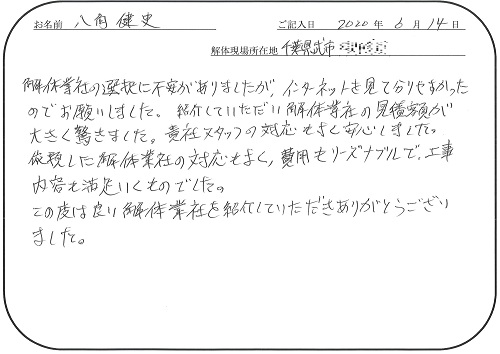 お名前 八角 健史 ご記入日 2020年 6月 14日
解体現場所在地 千葉県 市
解体業社の選択に不安がありましたが、インターネットを見て分りやすかった
のでお願いしました。紹介していただい解体業社の見積額が
大きく驚きました。貴社スタッフの対応もよく安心しました。
依頼した解体業社の対応もよく、費用もリーズナブルで、工事
内容も満足いくものでした。
この度は良い解体業社を紹介していただきありがとうござい
ました。